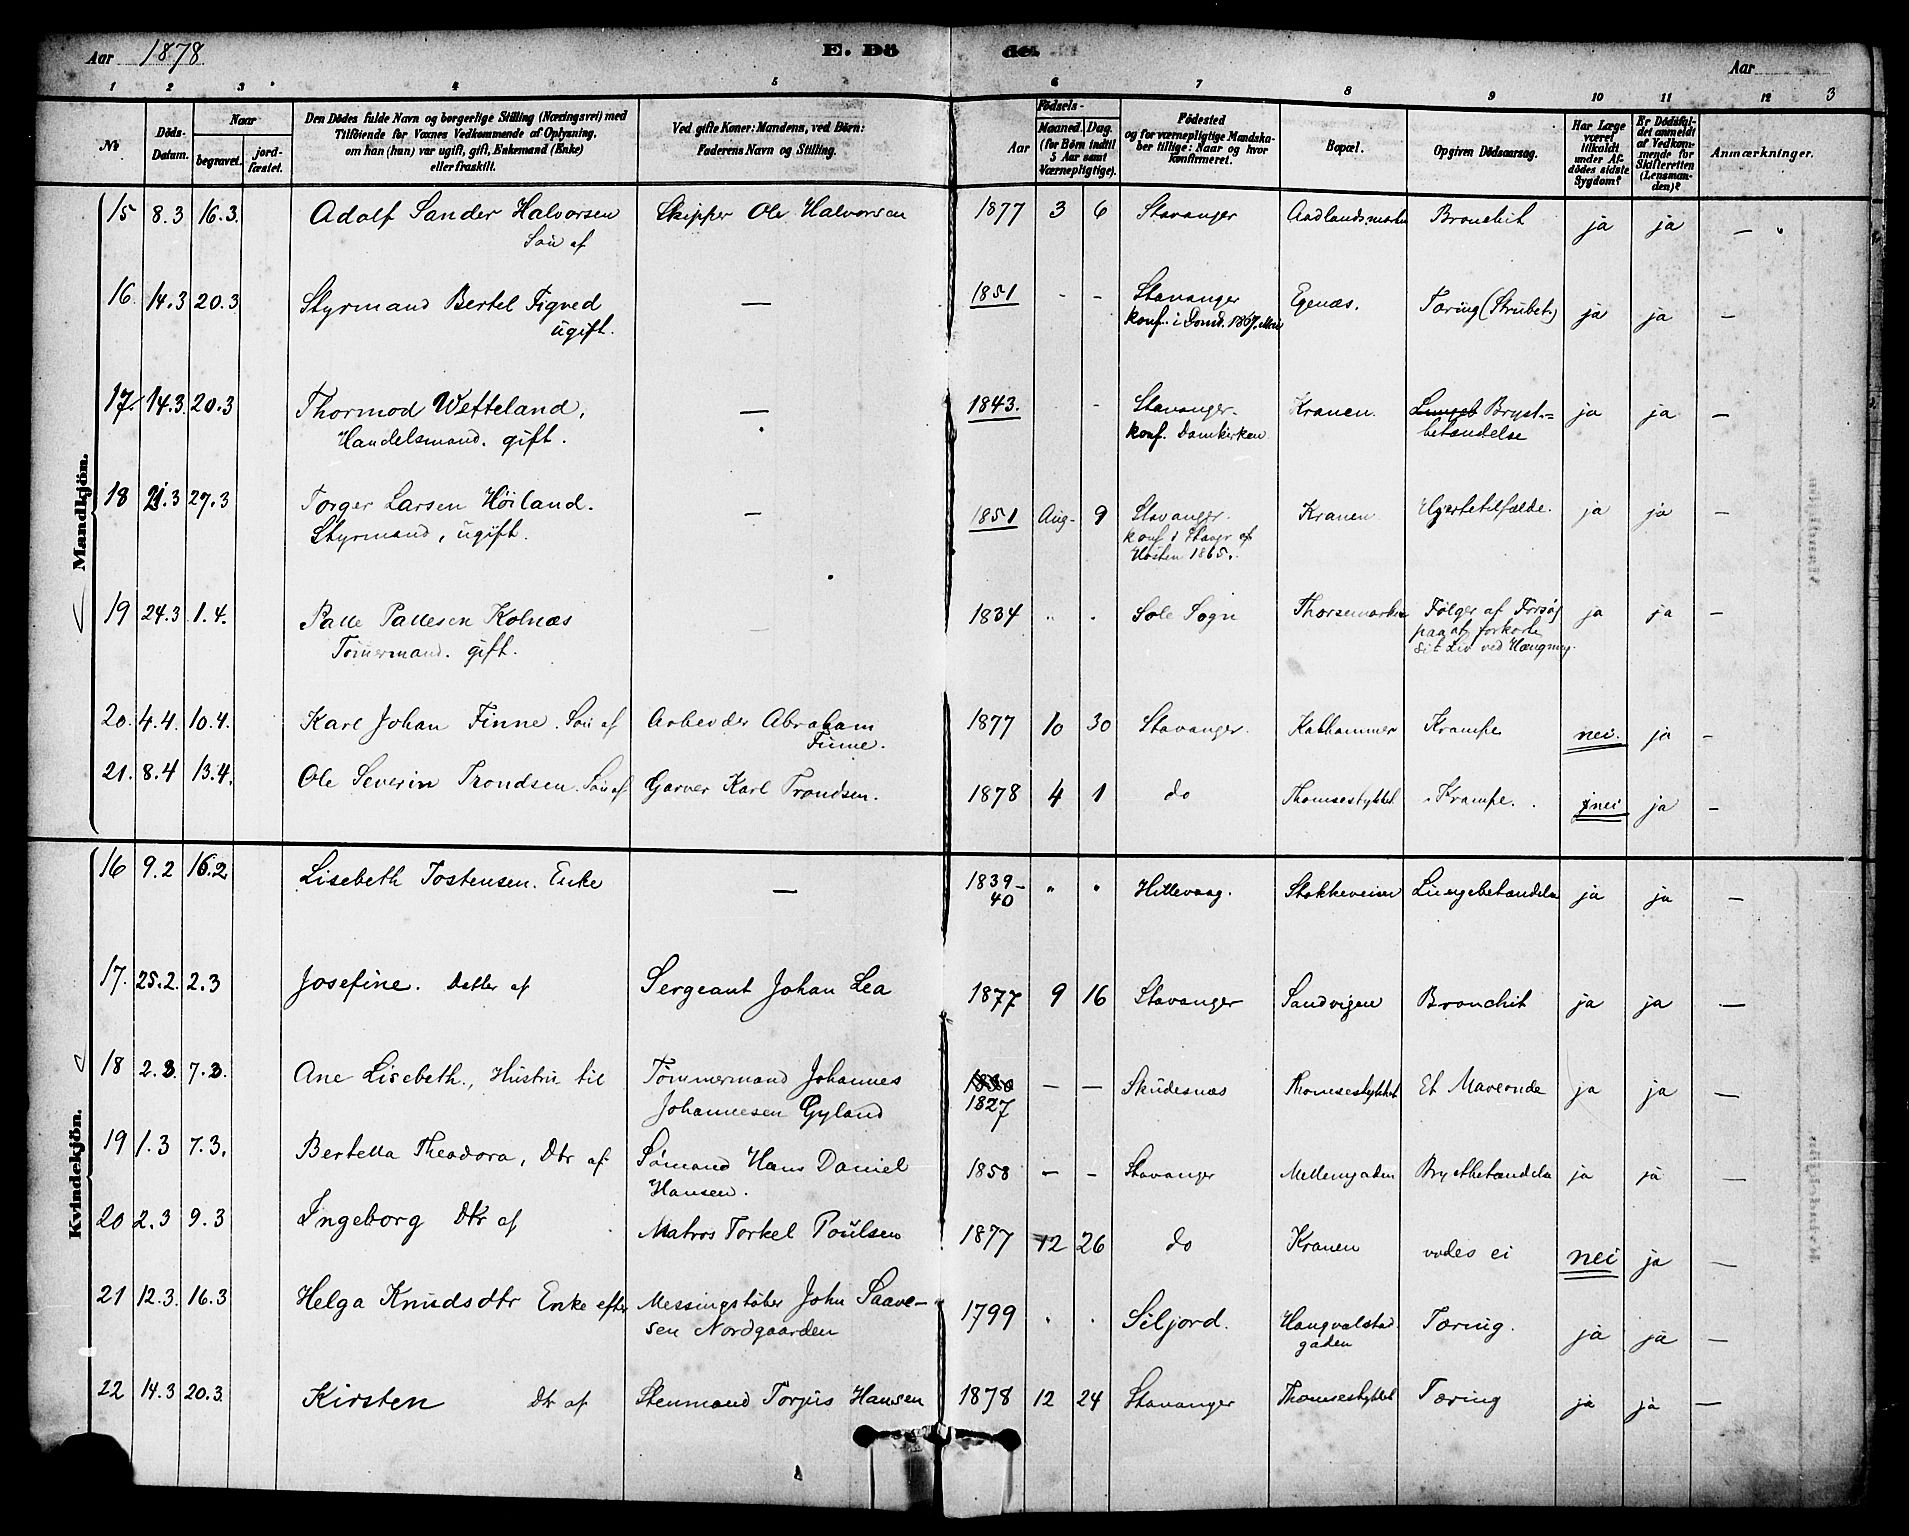 Aar 1878 E. Dö de. Aar
1 2 3 4 5 6 7 8 9 10 11 12 3
№ Döds-Datum. Naar begravet. jord-fæstet. Den Dödes fulde Navn og borgerlige Stilling (Næringsvei) med Tilföiende for Voxnes Vedkommende af Oplysning, om han (hun) var ugift, gift, Enkemand (Enke) eller fraskilt. Ved gifte Koner: Mandens, ved Börn: Faderens Navn og Stilling. Födsels- Aar Maaned. Dag. (for Börn indtil 5 Aar samt Værnepligtige). Födested og for værnepligtige Mandskaber tillige: Naar og hvor konfirmeret. Bopæl. Opgiven Dödsaarsag. Har Læge været tilkaldt under Afdödes sidste Sygdom? Er Dödsfaldet anmeldt af Vedkommende for Skifteretten (Lensmanden)? Anmærkninger.
Mandkjön.
15 8.3 16.3. Adolf Sander Halvorsen Skipper Ole Halvorsen 1877 3 6 Stavanger Bronchit ja ja —
Sön af
16 14.3 20.3 Styrmand Bertel Tigved — 1851 - - Stavanger Egenæs. Tæring (Strubet.) ja ja —
ugift. konf. i Domk. 1867
17. 14.3 20.3 Thormod Wetteland, — 1843. - Stavanger. Kranen. Lunget Bryst-= ja ja —
Handelsmand. gift. konf. Domkirken betændelse
18 21.3 27.3 Torger Larsen Høiland. — 1851 Aug- 9 Stavanger. Kranen Hjertetilfælde. ja ja —
Styrmand, ugift. konf i Stavgr af
Høsten 1865.
19 24.3 1.4. Palle Pallesen Kolnæs — 1834 " . Sole Sogn Thorsemarken Følger af Forsøg ja ja —
Tømmermand. gift. paa at forkorte
sit Liv ved Hængning.
20. 4.4. 10.4. Karl Johan Finne. Sön af Arbeider Abraham 1877 10 30 Stavanger. Kathammer Krampe nei. ja —
Finne.
21. 8.4 13.4. Ole Severin Trondsen. Sön af Garver Karl Trondsen. 1878 4 1 do Thomsestykket Krampe. nei ja —
Kvindekjön.
16 9.2 16.2 Lisebeth Tostensen. Enke — 1839- " " Hillevaag. Stokkeveien Lungebetændelse ja ja —
40
17. 25.2. 2.3 Josefine. Datter af Sergeant Johan Lea 1877 9 16 Stavanger Sandvigen Bronchit ja ja —
18 2.3. 7.3. Ane Lisebeth., Hustru til Tømmermand Johannes — — Skudesnæs Thomsestykket Et Maveonde ja ja —
Johannesen Gyland 1827
19 1.3 7.3. Bertella Theodora, Dtr af Sømand Hans Daniel 1858 — - Stavanger Mellemgaden Brystbetændelse ja ja —
Hansen.
20 2.3 9.3 Ingeborg Dtr af Matros Torkel Poulsen 1877 12 26 do Kranen vides ei nei ja —
21 12.3. 16.3 Helga Knudsdtr Enke efter Messingstøber John Saave- 1799 . . Siljord. Haugvalstad Tæring. ja ja —
sen Nordgaarden gaden
22 14.3 20.3 Kirsten Dtr af Stenmand Torjus Hansen 1878 12 24 Stavanger Thomsestykket Tæring ja ja —